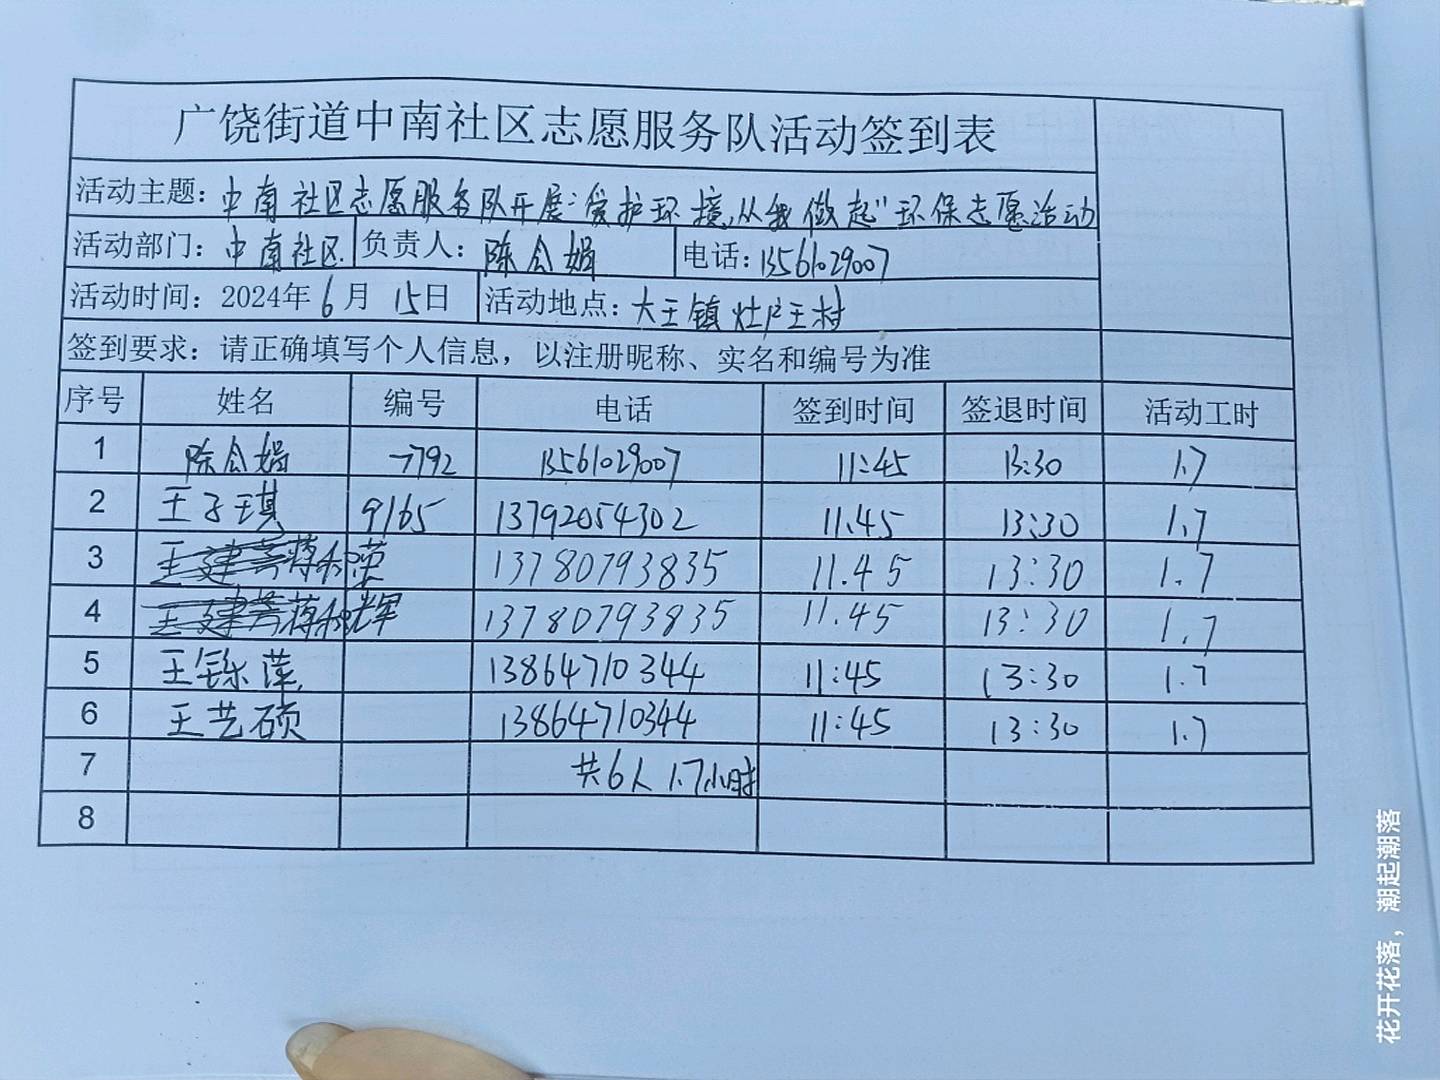 广饶街道中南社区志愿服务队活动签到表
活动主题：中南社区志愿服务队开展“爱护环境，从我做起”环保志愿活动
活动部门：中南社区 负责人：陈会娟 电话：13561029007
活动时间：2024年6月15日 活动地点：大王镇灶户王村
签到要求：请正确填写个人信息，以注册昵称、实名和编号为准
序号 姓名 编号 电话 签到时间 签退时间 活动工时
1 陈会娟 7792 13561029007 11:45 13:30 1.7
2 王子琪 9165 13792054302 11.45 13:30 1.7
3 蒋和荣 13780793835 11.45 13:30 1.7
4 蒋和辉 13780793835 11.45 13:30 1.7
5 王铄萍 13864710344 11:45 13:30 1.7
6 王艺硕 13864710344 11:45 13:30 1.7
7 共6人 1.7小时
8
花开花落，潮起潮落